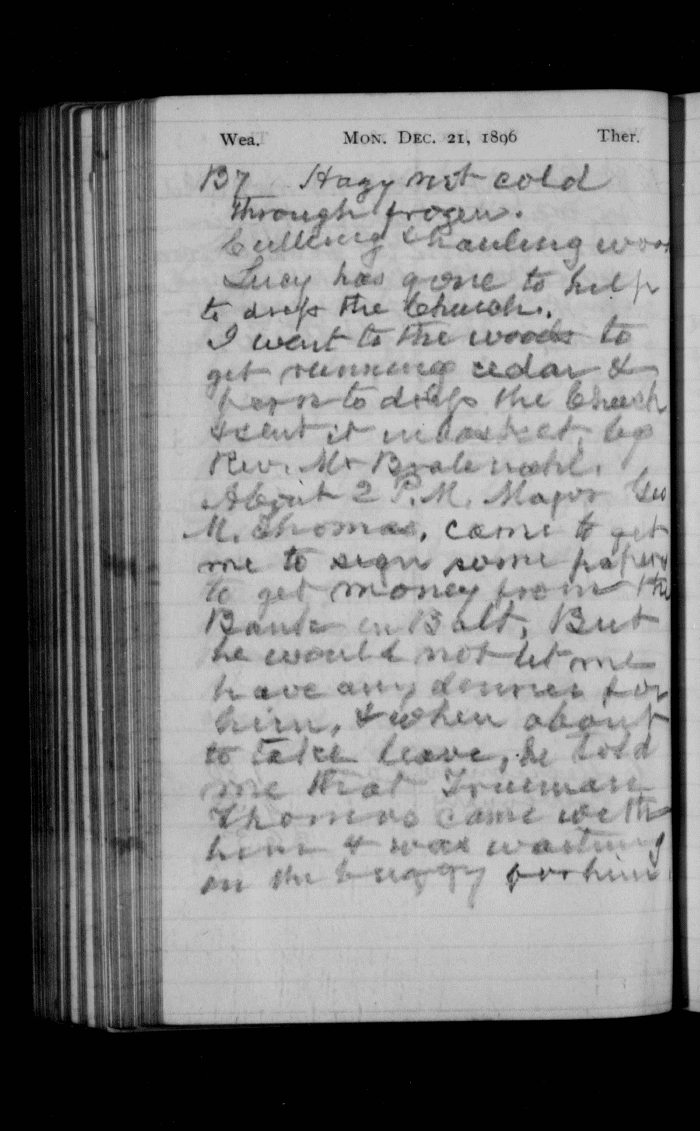 Wea. MON. DEC. 21, 1896 Ther.
Hazy not cold
through frozen.
Cutting & hauling wood
Lucy has gone to help
to dress the Church.
I went to the woods to
get running cedar &
to dress the Church
& sent it in basket by
Rev. Mr
About 2 P.M. Major Geo
M. Thomas, came to get
me to sign some papers
to get money from the
Bank in Balt, But
he would not let me
have any dinner for
him, & when about
to take leave, he told
me that Trueman
Thomas came with
him & was waiting
in the buggy for him